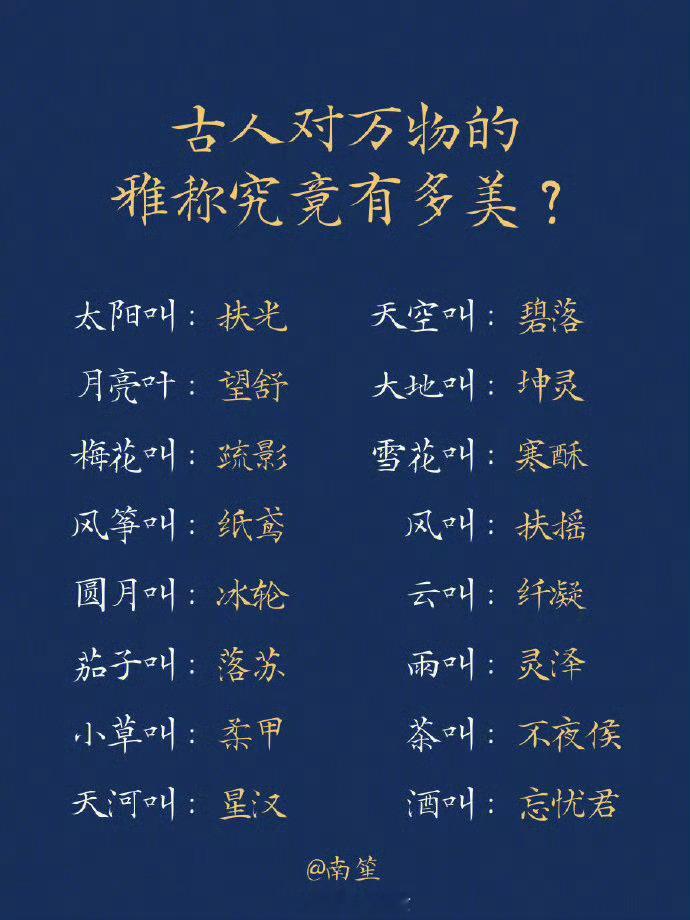 古人对万物的
雅称究竟有多美？
太阳叫：扶光 天空叫：碧落
月亮叶：望舒 大地叫：坤灵
梅花叫：疏影 雪花叫：寒酥
风筝叫：纸鸢 风叫：扶摇
圆月叫：冰轮 云叫：纤凝
茄子叫：落苏 雨叫：灵泽
小草叫：柔甲 茶叫：不夜侯
天河叫：星汉 酒叫：忘忧君
@南笙